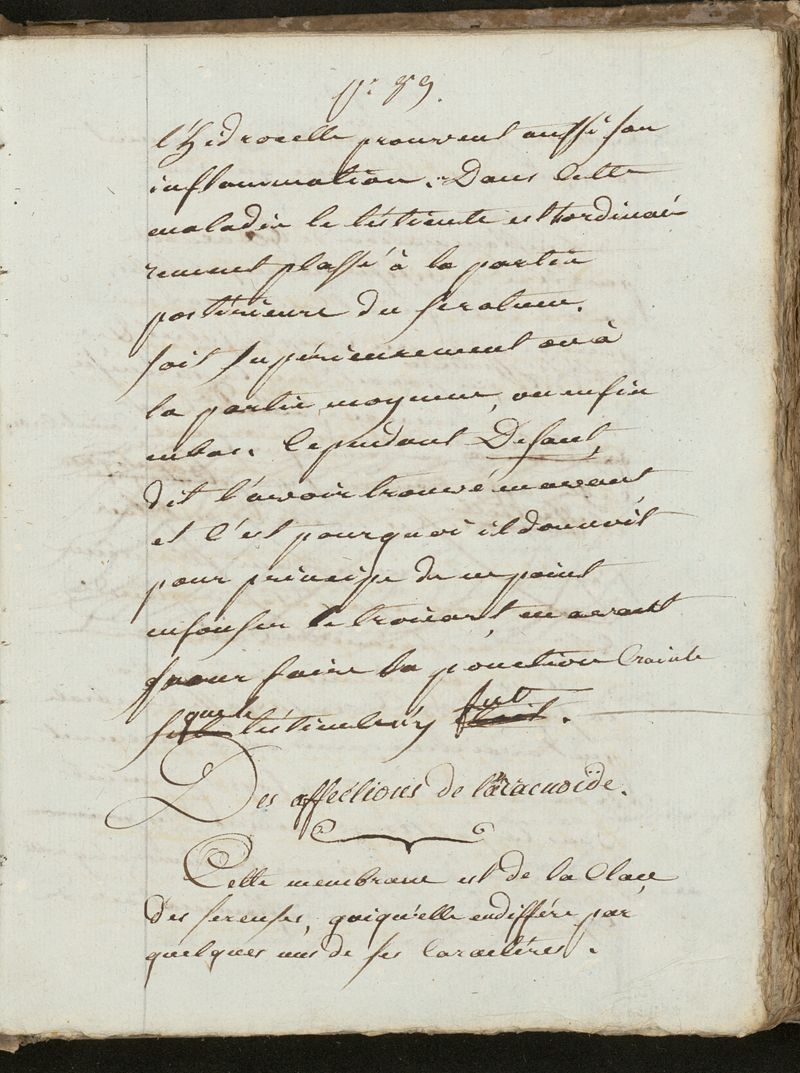 pr 89.
l'hidrocelle prouvent aussi son
inflammation. Dans cette
maladie le testicule est ordinai
rement plassé à la partie
postérieure du scrotum.
soit supérieurement ou à
la partie moyenne, ou enfin
enbas. Cependant Desaut,
dit l'avoir trouvé en avant
et c'est pourquoi il donnoit
pour principe de ne point
enfonser le troicart, en avant
pour faire la ponction crainte
que le testicule n'y fut.
Des affections de l'aracnoïde.
Cette membrane est de la Clase
des sereuses, quoiqu'elle endiffére par
quelques uns de ses Caractères.